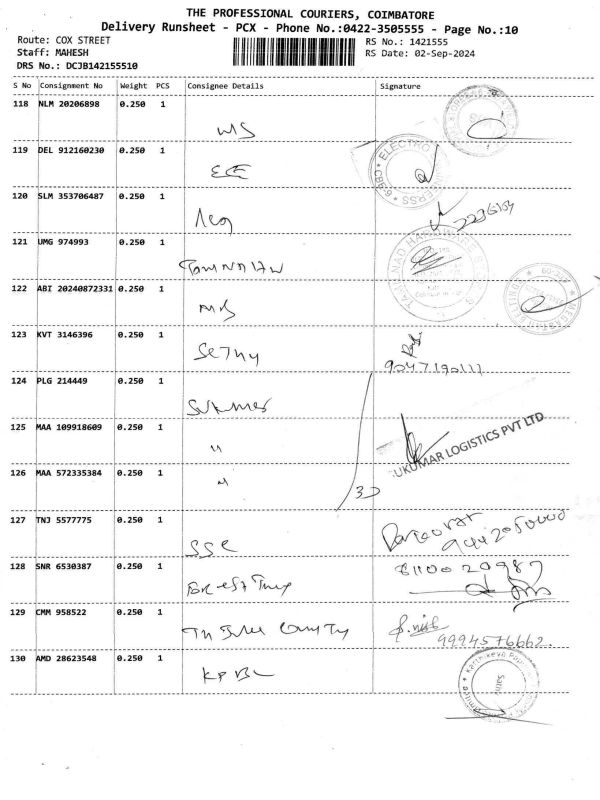 THE PROFESSIONAL COURIERS, COIMBATORE
Delivery Runsheet - PCX - Phone No.:0422-3505555 - Page No.:10
Route: COX STREET
Staff: MAHESH
DRS No.: DCJB142155510
RS No.: 1421555
RS Date: 02-Sep-2024
S No Consignment No Weight PCS Consignee Details Signature
118 NLM 20206898 0.250 1
WS
119 DEL 912160230 0.250 1
ECE
ELECTRO
CBE-9
120 SLM 353706487 0.250 1
121 UMG 974993 0.250 1
TAMIL NAD HARDWARE STORES
122 ABI 20240872331 0.250 1
MB
MEGASTAR BELTING
123 KVT 3146396 0.250 1
Sethy
9047190111
124 PLG 214449 0.250 1
Sukumar
125 MAA 109918609 0.250 1
"
UKUMAR LOGISTICS PVT LTD
126 MAA 572335384 0.250 1
"
3
127 TNJ 5577775 0.250 1
SSC
128 SNR 6530387 0.250 1
129 CMM 958522 0.250 1
9994576662.
130 AMD 28623548 0.250 1
KPBL
Karthikeya